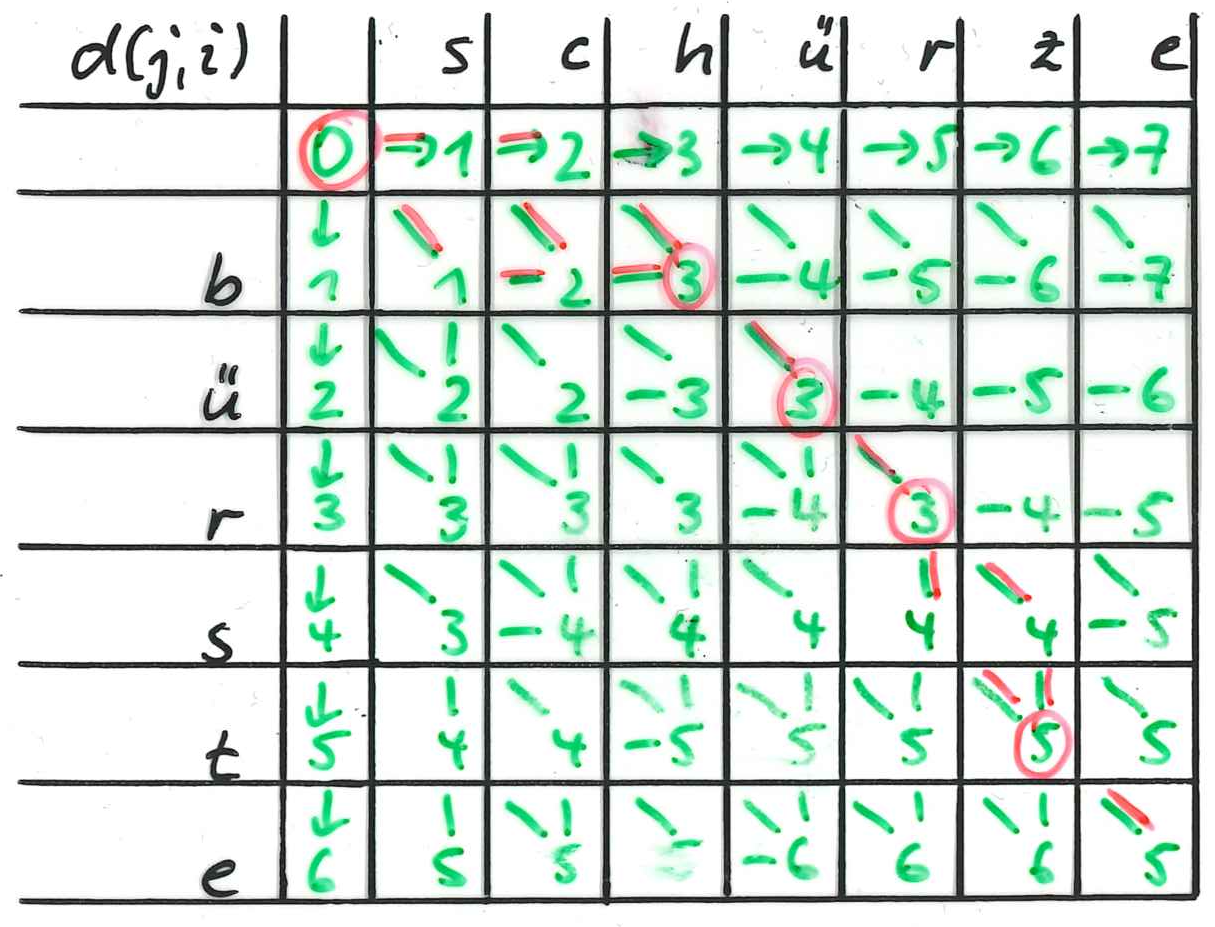 d(j,i) s c h ü r z e
0 →1 →2 →3 →4 →5 →6 →7
b 1 1 2 3 4 5 6 7
ü 2 2 2 3 3 4 5 6
r 3 3 3 3 4 3 4 5
s 4 3 4 4 4 4 4 5
t 5 4 4 5 5 5 5 5
e 6 5 5 5 6 6 6 5